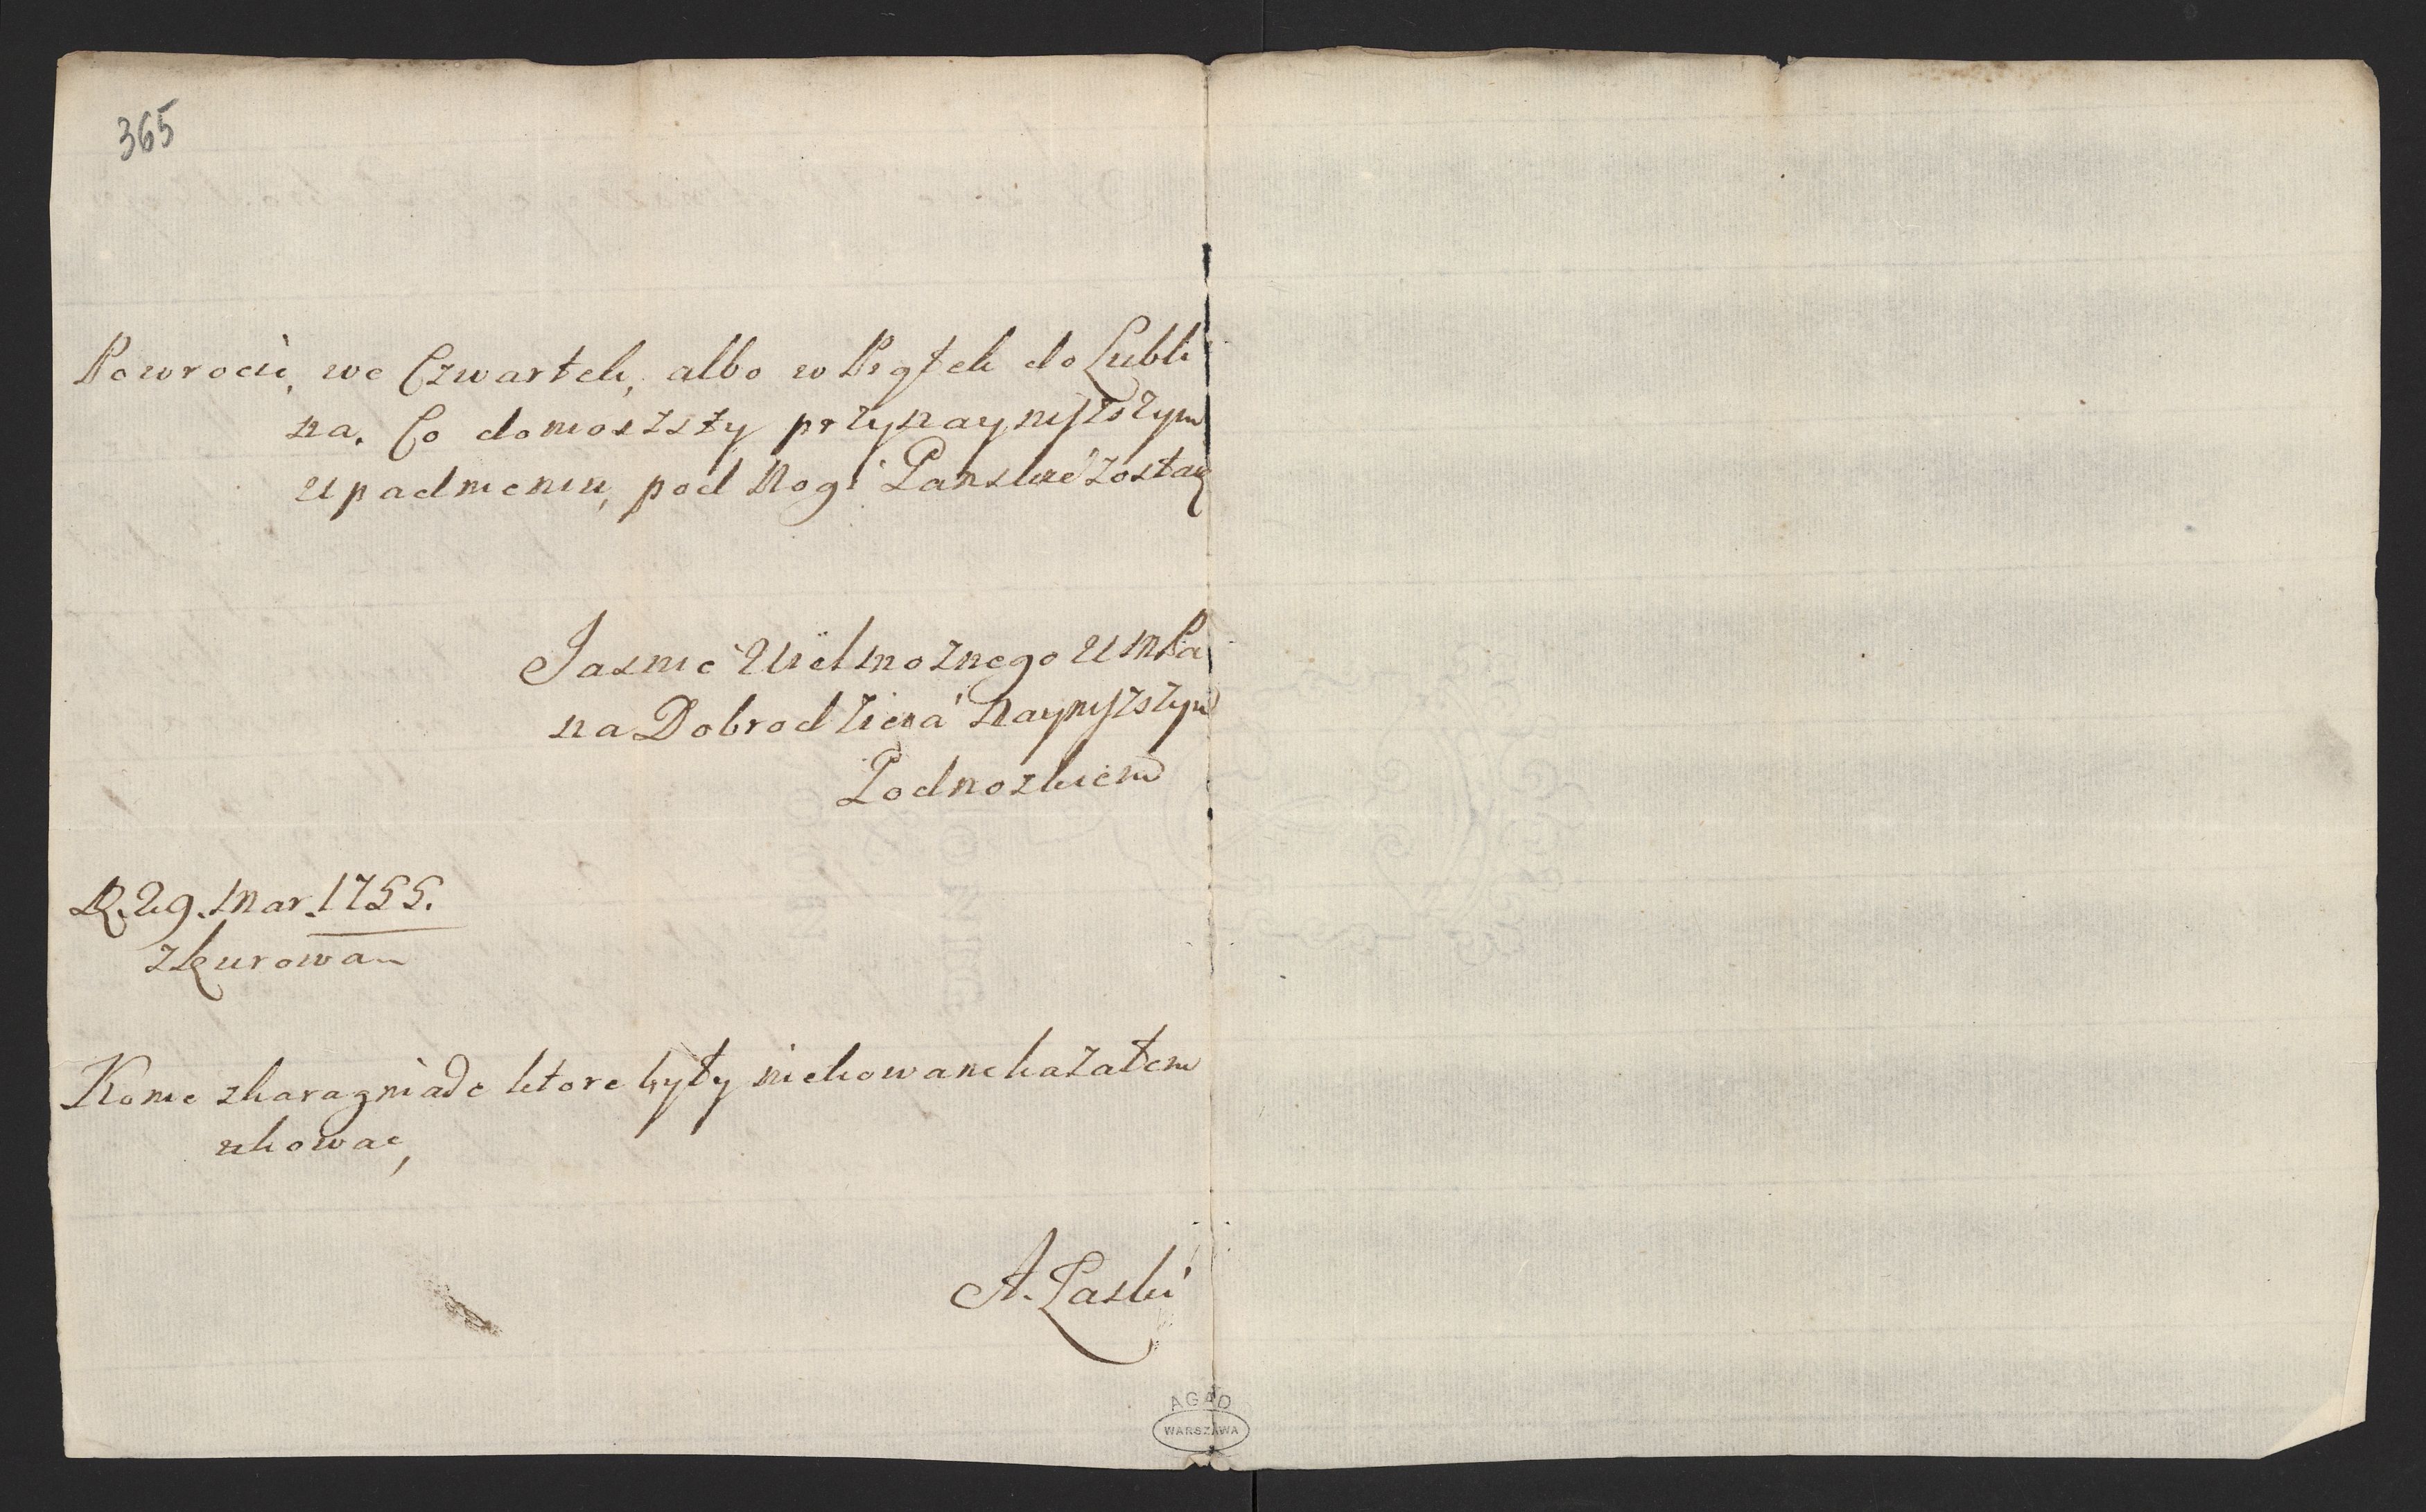 365
Powrocić we Czwartek, albo w Piątek do Lubli
na. Co donioszszy przynayniższym
upadnieniu, pod Nogi Panskie zostaię
Jasnie Wielmoznego UMPa
na Dobrodzieia Nayniższym
Podnozkiem
D. 29. Mar. 1755.
z Kurowa
Konie zkarazniade ktore były niekowane kazałem
ukowac,
A. Laski
AGAD
WARSZAWA